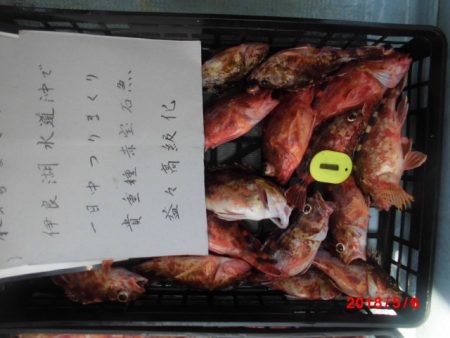 伊良湖水道沖で
一日中つりまくり
貴重種赤宝石魚
益々高級化
2018/5/6